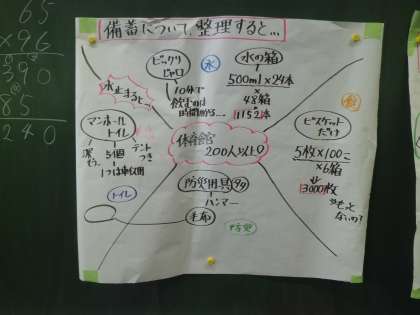 65
×96
390
85
240
備蓄について,整理すると…
水
ビックリ
ジャロ
10分で
飲むのは
時間かかる…
水の箱
500ml×24本
×
48箱
1152本
水止まると…
マンホール
トイレ
5個
テント
つき
1つは車イス用
トイレ
体育館
200人以上♡
食
ビスケット
だけ
5枚×100こ
×6箱
3000枚
もっと
ないの?
防災用具
ハンマー
毛布
防災